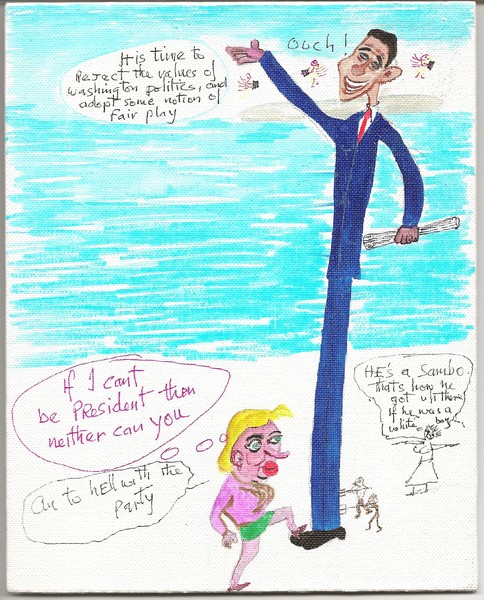 Ouch!
It is time to
Reject the values of
washington politics, and
adopt some notion of
Fair play
If I cant
be President then
neither can you
to hell with the
party
HE's a Sambo.
thats how he
got up there
If he was a
white boy